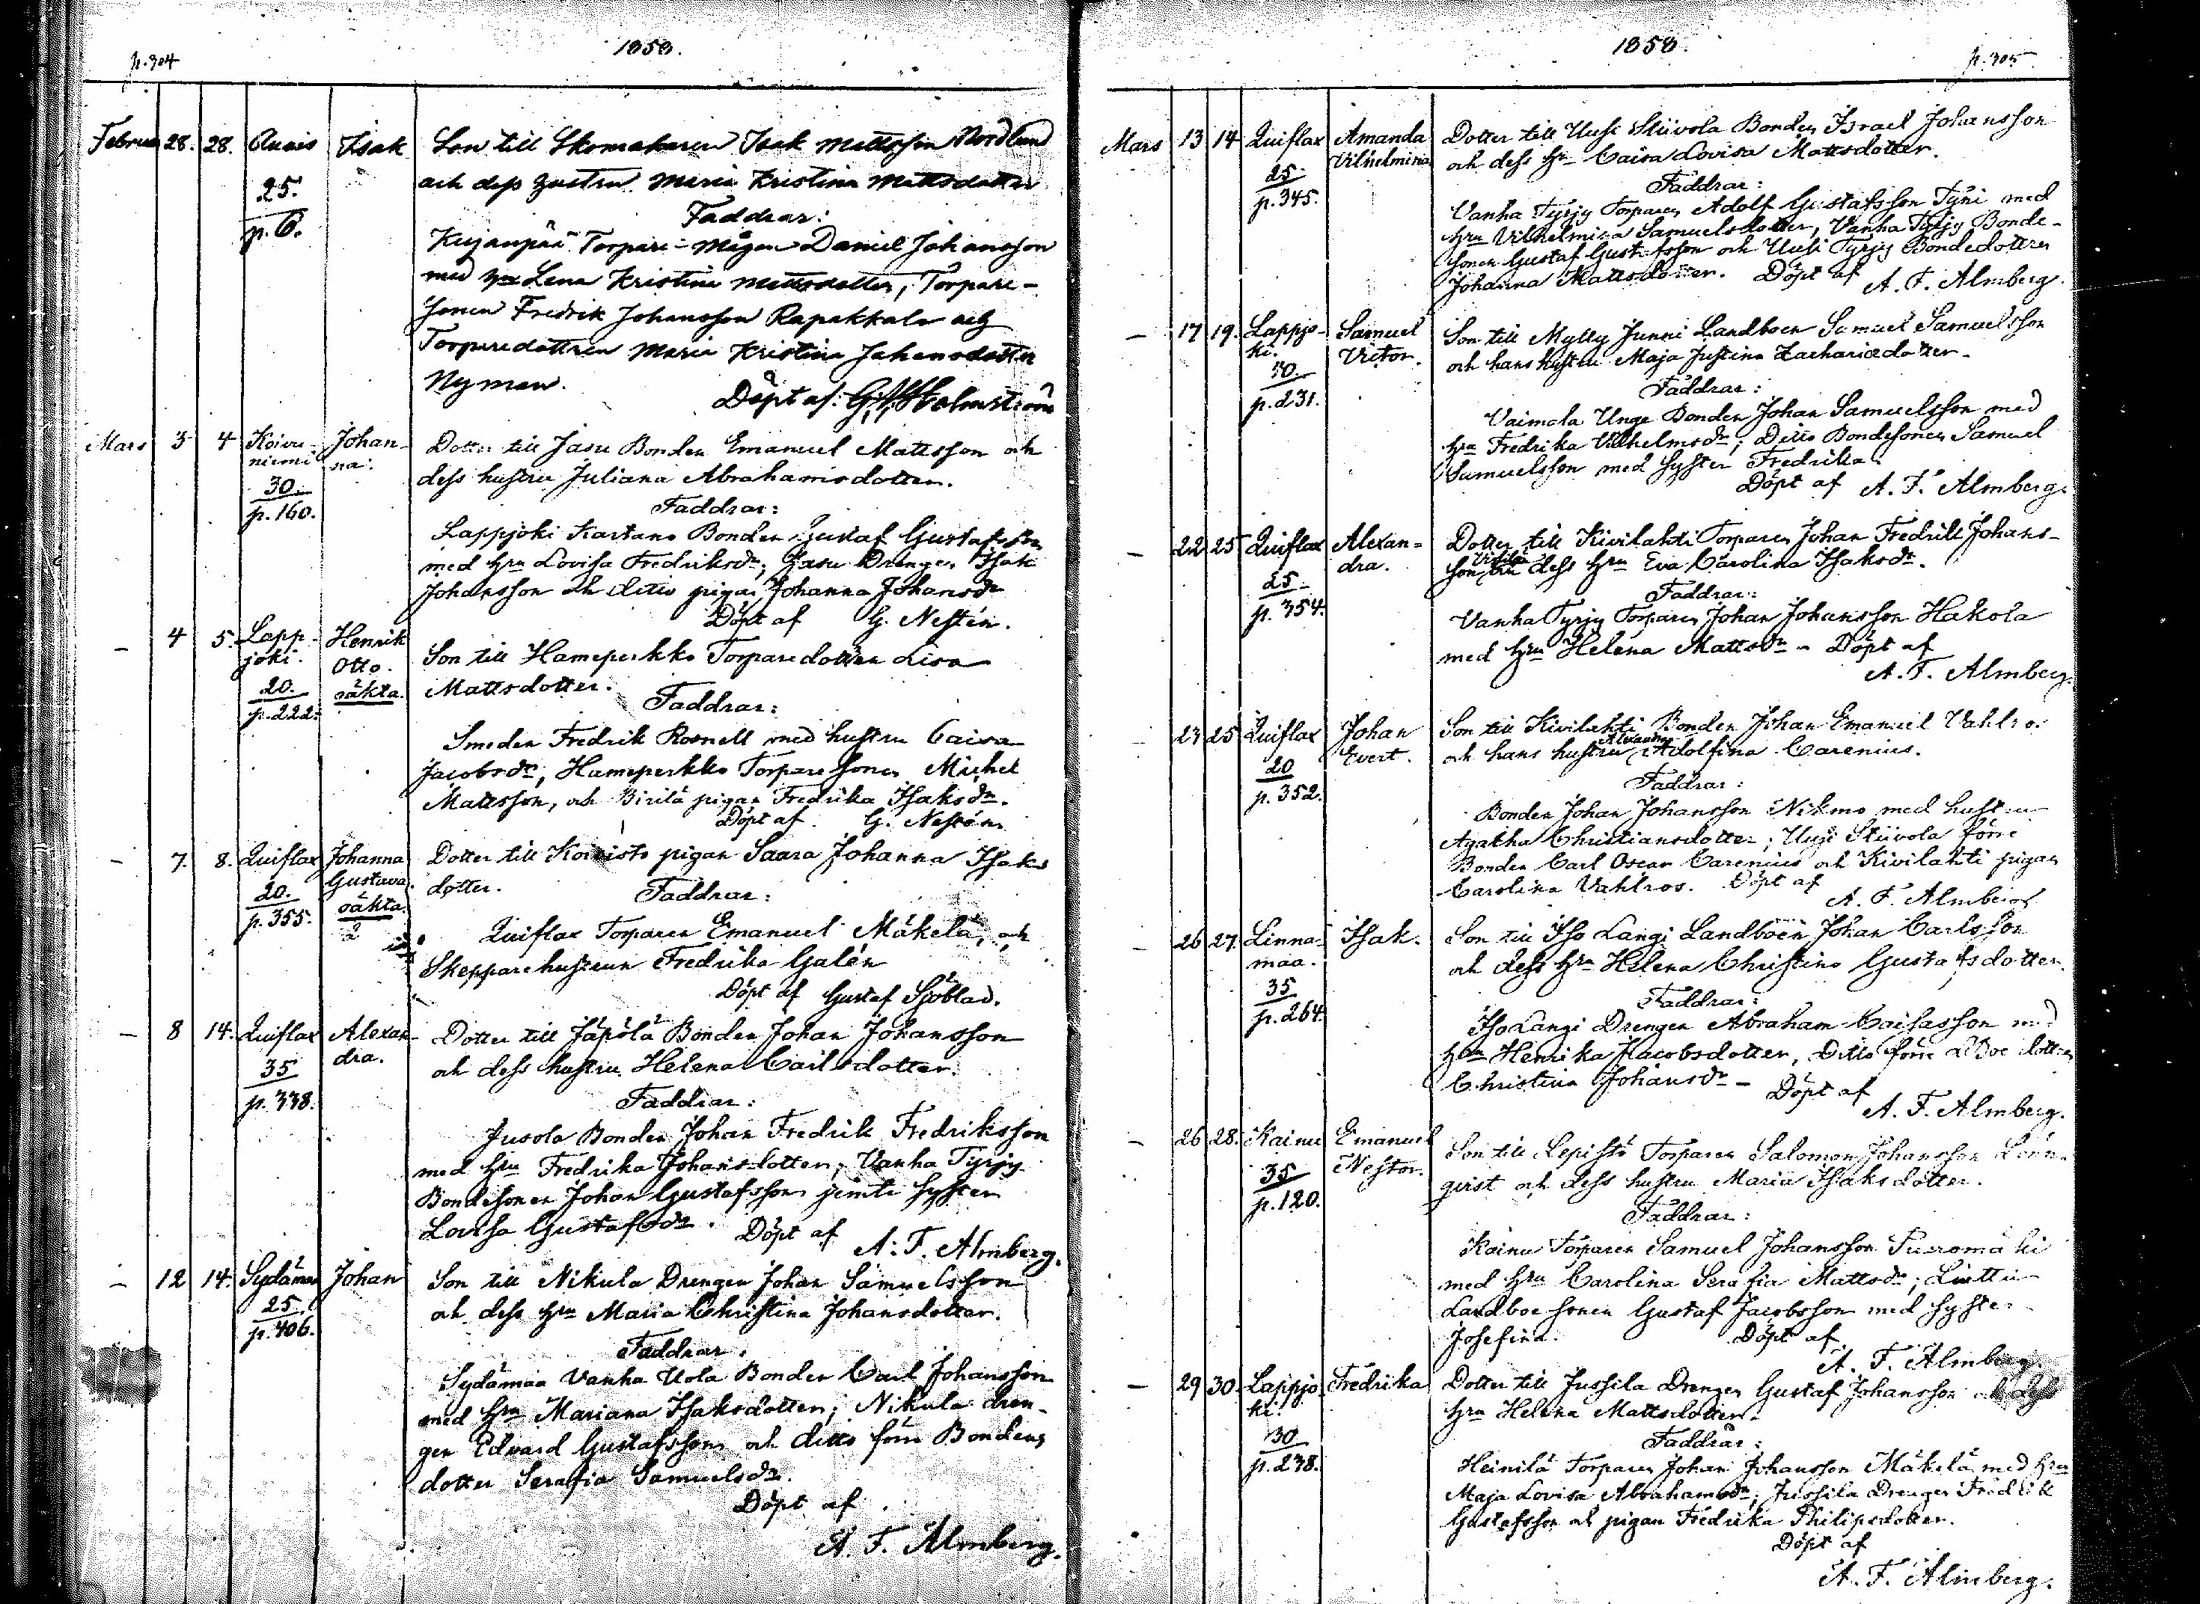 p. 304
1858.
Februar 28. 28. Anais Isak Son till Skomakaren Isak Mattsson Nordlund
25. och dess hustru Maria Kristina Mattsdotter
p. 6. Faddrar:
Kujanpää Torpare-Mågen Daniel Johansson
med hru Lena Kristina Mattsdotter, Torpare-
sonen Fredrik Johansson Rapakkala och
Torparedottren Maria Kristina Johansdotter
Nyman.
Döpt af: Holmström
Mars 3 4 Koivu- Johan- Dotter till Jasu Bonden Emanuel Mattsson och
niemi na. dess hustru Juliana Abrahamsdotter.
30. Faddrar:
p. 160.
Lappjoki Kartano Bonden Gustaf Gustafsson
med hru Lovisa Fredriksdr; Jasu Drengen Isak
Johansson och ditto pigan Johanna Johansdr
Döpt af G. Nestén.
– 4 5. Lapp- Henrik Son till Hameperkko Torparedotter Lisa
joki. Otto. Mattsdotter.
20. oäkta. Faddrar:
p. 222.
Smeden Fredrik Rosnell med hustru Caisa
Jacobsdr, Hameperkko Torparesonen Michel
Mattsson, och Birilä pigan Fredrika Isaksdr.
Döpt af G. Nestén
– 7. 8. Quiflax Johanna Dotter till Koivisto pigan Saara Johanna Isaks
20. Gustava. dotter. Faddrar:
p. 355. oäkta.
2
Quiflax Torparen Emanuel Mäkelä, och
Skepparehustrun Fredrika Galén
Döpt af Gustaf Sjöblad.
– 8 14. Quiflax Alexan- Dotter till Jäpölä Bonden Johan Johansson
35 dra. och dess hustru Helena Carlsdotter.
p. 338. Faddrar:
Jusola Bonden Johan Fredrik Fredriksson
med hru Fredrika Johansdotter, Vanha Tyrjy
Bondesonen Johan Gustafsson jemte syster
Lovisa Gustafsdr. Döpt af
A. F. Almberg.
– 12 14. Sydämaa Johan Son till Nikula Drengen Johan Samuelsson
25. och dess hru Maria Christina Johansdotter.
p. 406. Faddrar:
Sydämaa Vanha Uola Bonden Carl Johansson
med hru Mariana Isaksdotter; Nikula dren-
gen Edvard Gustafsson och ditto förre Bondens
dotter Serafia Samuelsdr.
Döpt af
A. F. Almberg.
1858.
p. 305
Mars 13 14 Quiflax Amanda Dotter till Uusi Stiivola Bonden Israel Johansson
25. Vilhelmina och dess hru Caisa Lovisa Mattsdotter.
p. 345. Faddrar:
Vanha Tyrjy Torparen Adolf Gustafsson Tyni med
hru Vilhelmina Samuelsdotter, Vanha Tyrjy Bonde-
sonen Gustaf Gustafsson och Uusi Tyrjy Bondedottren
Johanna Mattsdotter. Döpt af A. F. Almberg.
– 17 19. Lappjo- Samuel Son till Mylly Junni Landboen Samuel Samuelsson
ki. Victor. och hans hustru Maja Justina Zachariædotter.
30. Faddrar:
p. 231.
Vaimala Unge Bonden Johan Samuelsson med
hru Fredrika Vilhelmsdr; Ditto Bondesonen Samuel
Samuelsson med syster Fredrika
Döpt af A. F. Almberg.
– 22 25 Quiflax Alexan- Dotter till Kivilahti Torparen Johan Fredrik Johans-
25 dra. son dess hru Eva Carolina Isaksdr.
p. 354. Faddrar:
Vanha Tyrjy Torparen Johan Johansson Hakola
med hru Helena Mattsdr – Döpt af
A. F. Almberg.
23 25 Quiflax Johan Son till Kivilahti Bonden Johan Emanuel Vahlros
20 Evert. och hans hustru Alexandra Adolfina Carenius.
p. 352. Faddrar:
Bonden Johan Johansson Nikmo med hustru
Agatha Christiansdotter; Uusi Stiivola förre
Bonden Carl Oscar Carenius och Kivilahti pigan
Carolina Vahlros. Döpt af
A. F. Almberg
– 26 27. Linna- Isak. Son till Iso Langi Landboen Johan Carlsson
maa. och dess hru Helena Christina Gustafsdotter.
35 Faddrar:
p. 264.
Iso Langi Drengen Abraham Caisasson med
hru Henrika Jacobsdotter, Ditto förre LBoe dottren
Christina Johansdr – Döpt af
A. F. Almberg.
– 26 28. Kainu Emanuel Son till Lepistö Torparen Salomon Johansson Lönn-
35 Nestor. qvist och dess hustru Maria Isaksdotter.
p. 120. Faddrar:
Kainu Torparen Samuel Johansson Tuoromäki
med hru Carolina Serafia Mattsdr; Liuttu
Landboe sonen Gustaf Jacobsson med syster
Josefina. Döpt af
A. F. Almberg.
– 29 30. Lappjo- Fredrika Dotter till Jussila Drengen Gustaf Johansson och dess
ki. hru Helena Mattsdotter.
30 Faddrar:
p. 238.
Heinilä Torparen Johan Johansson Mäkelä med hru
Maja Lovisa Abrahamsdr; Jussila Drengen Fredrik
Gustafsson och pigan Fredrika Philipsdotter.
Döpt af
A. F. Almberg.